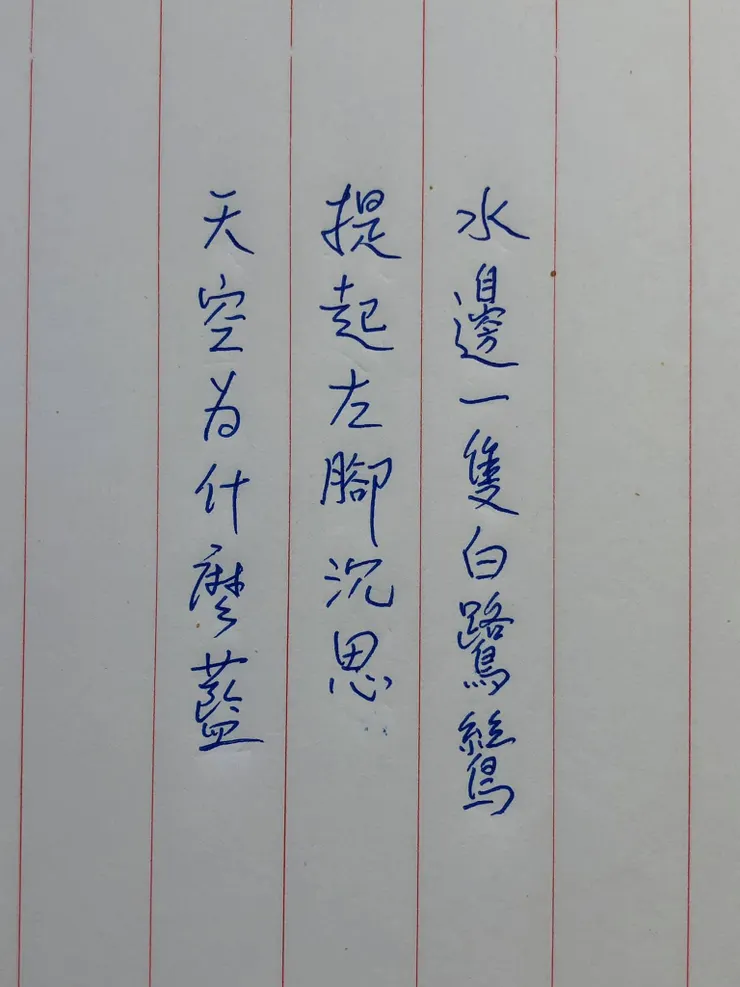 水邊一隻白鷺鷥
提起左腳沉思
天空为什麼藍